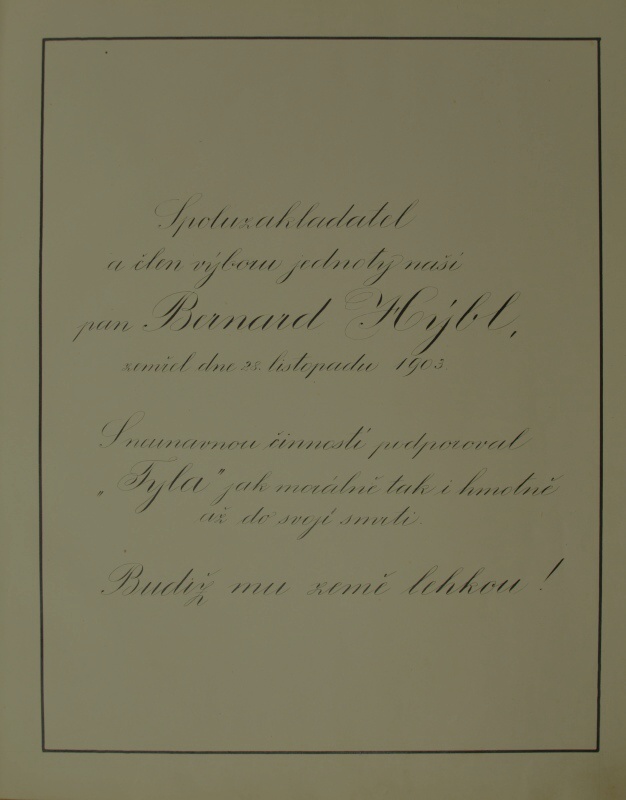 Spoluzakladatel
a člen výboru jednoty naší
pan Bernard Hýbl,
zemřel dne 28. listopadu 1903.
S neúnavnou činností podporoval
„Tyla” jak morálně tak i hmotně
až do svojí smrti.
Budiž mu země lehkou!